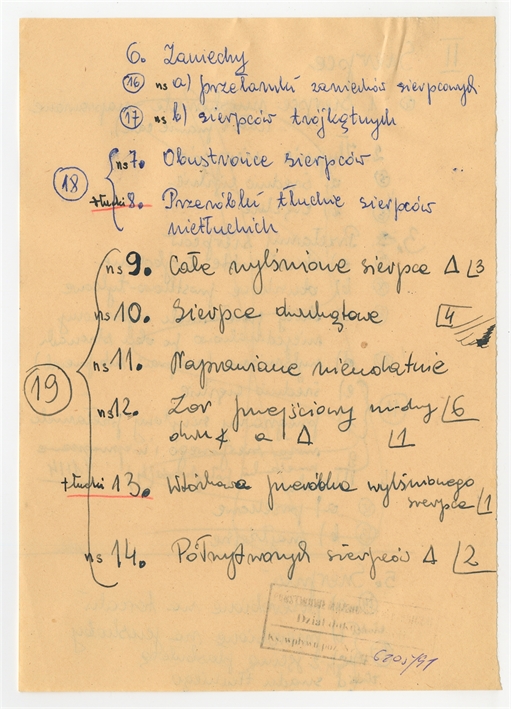 6. Zaniechy
16 ns a) przełamki zaniechów sierpcowych
17 ns b) sierpców trójkątnych
ns 7. Obustronice sierpców
18
+tłuski 8. Przeróbki tłuskie sierpców
nietłuskich
ns 9. Całe wyświnione sierpce Δ 3
ns 10. Sierpce dwukątowe 4
ns 11. Naprawiane nieudatnie
19
ns 12. Zoś przejściowy między 6
dwu ∢ a Δ 1
+tłuski 13. Wtórkowa przeróbka wyświnionego
sierpca 1
ns 14. Półwytwornych sierpców Δ 2
Dział
6205/91